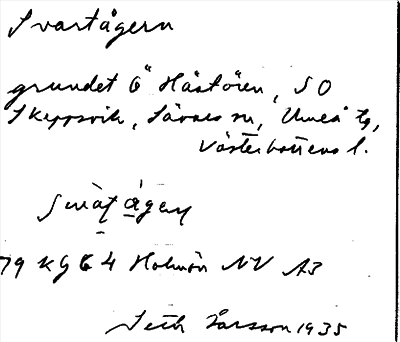 Svartågern
grundet Ö Hästören, SO
Skeppsvik, Sävars sn, Umeå tg,
Västerbottens l.
79 KG C 4 Holmön NV A3
Seth Larsson 1935